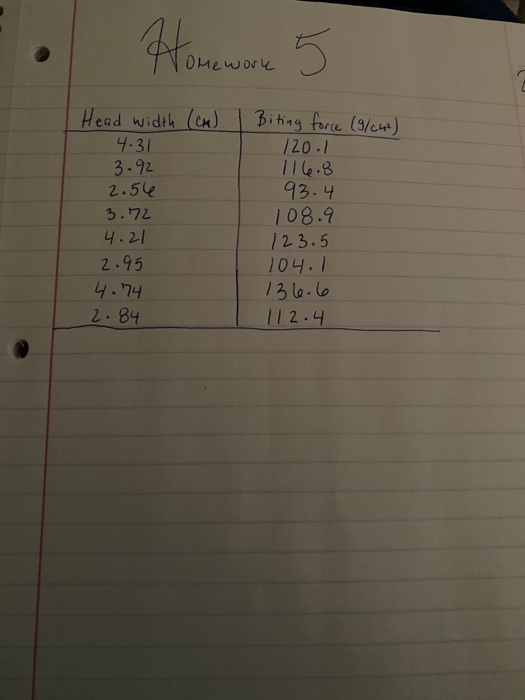 Homework 5
Head width (cm) Biting force (g/cm²)
4.31 120.1
3.92 116.8
2.56 93.4
3.72 108.9
4.21 123.5
2.95 104.1
4.74 136.6
2.84 112.4